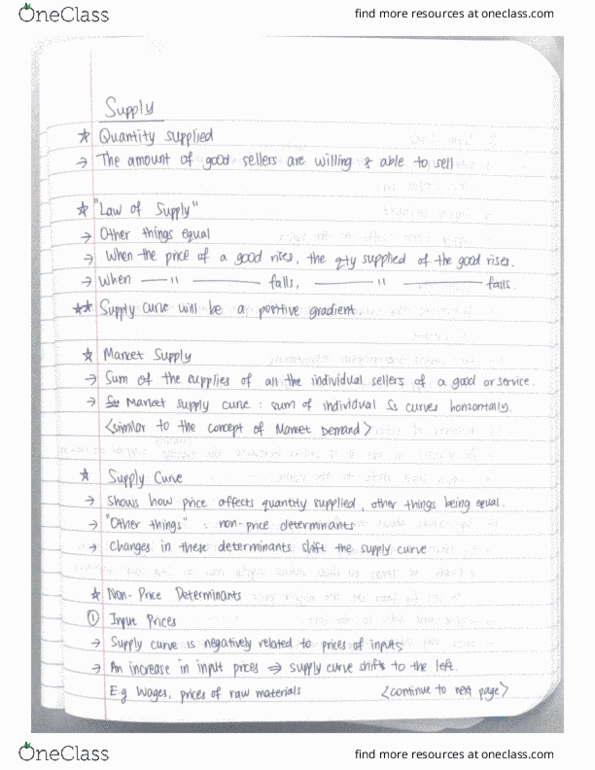 OneClass
find more resources at oneclass.com
Supply
☆ Quantity supplied
→ The amount of good sellers are willing & able to sell
☆ "Law of Supply"
→ Other things equal
→ When the price of a good rises, the qty supplied of the good rises.
→ When —— " —— falls, —— " —— falls.
☆☆ Supply curve will be a positive gradient.
☆ Market Supply
→ Sum of the supplies of all the individual sellers of a good or service.
→ Market supply curve : sum of individual Ss curves horizontally.
<similar to the concept of Market Demand>
☆ Supply Curve
→ Shows how price affects quantity supplied, other things being equal.
→ "Other things" : non-price determinants
→ Changes in these determinants shift the supply curve
☆ Non-Price Determinants
① Input Prices
→ Supply curve is negatively related to prices of inputs
→ An increase in input prices ⇒ supply curve shifts to the left.
E.g Wages, prices of raw materials <continue to next page>
OneClass
find more resources at oneclass.com